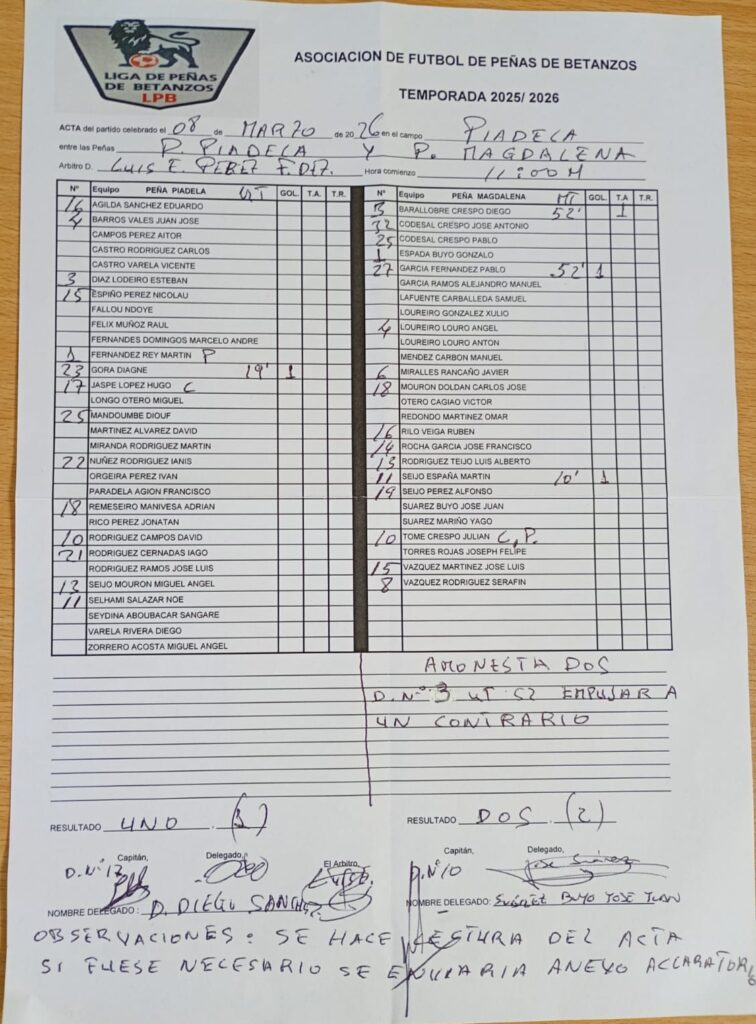 LIGA DE PEÑAS
DE BETANZOS
LPB
ASOCIACION DE FUTBOL DE PEÑAS DE BETANZOS
TEMPORADA 2025/ 2026
ACTA del partido celebrado el 08 de MARZO de 2026 en el campo PIADELA
entre las Peñas P. PIADELA Y P. MAGDALENA
Arbitro D. LUIS E. PEREZ F.DEZ. Hora comienzo 11:00 H
Nº Equipo PEÑA PIADELA MT GOL. T.A. T.R.
16 AGILDA SANCHEZ EDUARDO
4 BARROS VALES JUAN JOSE
CAMPOS PEREZ AITOR
CASTRO RODRIGUEZ CARLOS
CASTRO VARELA VICENTE
3 DIAZ LODEIRO ESTEBAN
15 ESPIÑO PEREZ NICOLAU
FALLOU NDOYE
FELIX MUÑOZ RAUL
FERNANDES DOMINGOS MARCELO ANDRE
1 FERNANDEZ REY MARTIN P
23 GORA DIAGNE 19' 1
17 JASPE LOPEZ HUGO C
LONGO OTERO MIGUEL
25 MANDOUMBE DIOUF
MARTINEZ ALVAREZ DAVID
MIRANDA RODRIGUEZ MARTIN
22 NUÑEZ RODRIGUEZ IANIS
ORGEIRA PEREZ IVAN
PARADELA AGION FRANCISCO
18 REMESEIRO MANIVESA ADRIAN
RICO PEREZ JONATAN
10 RODRIGUEZ CAMPOS DAVID
21 RODRIGUEZ CERNADAS IAGO
RODRIGUEZ RAMOS JOSE LUIS
13 SEIJO MOURON MIGUEL ANGEL
11 SELHAMI SALAZAR NOE
SEYDINA ABOUBACAR SANGARE
VARELA RIVERA DIEGO
ZORRERO ACOSTA MIGUEL ANGEL
Nº Equipo PEÑA MAGDALENA MT GOL. T.A T.R.
3 BARALLOBRE CRESPO DIEGO 52' 1
32 CODESAL CRESPO JOSE ANTONIO
25 CODESAL CRESPO PABLO
1 ESPADA BUYO GONZALO
27 GARCIA FERNANDEZ PABLO 52' 1
GARCIA RAMOS ALEJANDRO MANUEL
LAFUENTE CARBALLEDA SAMUEL
LOUREIRO GONZALEZ XULIO
4 LOUREIRO LOURO ANGEL
LOUREIRO LOURO ANTON
MENDEZ CARBON MANUEL
6 MIRALLES RANCAÑO JAVIER
18 MOURON DOLDAN CARLOS JOSE
OTERO CAGIAO VICTOR
REDONDO MARTINEZ OMAR
16 RILO VEIGA RUBEN
14 ROCHA GARCIA JOSE FRANCISCO
13 RODRIGUEZ TEIJO LUIS ALBERTO
11 SEIJO ESPAÑA MARTIN 10' 1
19 SEIJO PEREZ ALFONSO
SUAREZ BUYO JOSE JUAN
SUAREZ MARIÑO YAGO
10 TOME CRESPO JULIAN C, P.
TORRES ROJAS JOSEPH FELIPE
15 VAZQUEZ MARTINEZ JOSE LUIS
8 VAZQUEZ RODRIGUEZ SERAFIN
AMONESTADOS
D. Nº 3 MT 52 EMPUJAR A
UN CONTRARIO
RESULTADO UNO (1)
RESULTADO DOS (2)
Capitán, Delegado, El Arbitro,
Capitán, Delegado,
D. Nº 17
D. Nº 10 Jose Suárez
NOMBRE DELEGADO: D. DIEGO SANCHEZ
NOMBRE DELEGADO: SUÁREZ BUYO JOSE JUAN
OBSERVACIONES: SE HACE LESTURA DEL ACTA
SI FUESE NECESARIO SE ENVIARIA ANEXO ACLARATORIO